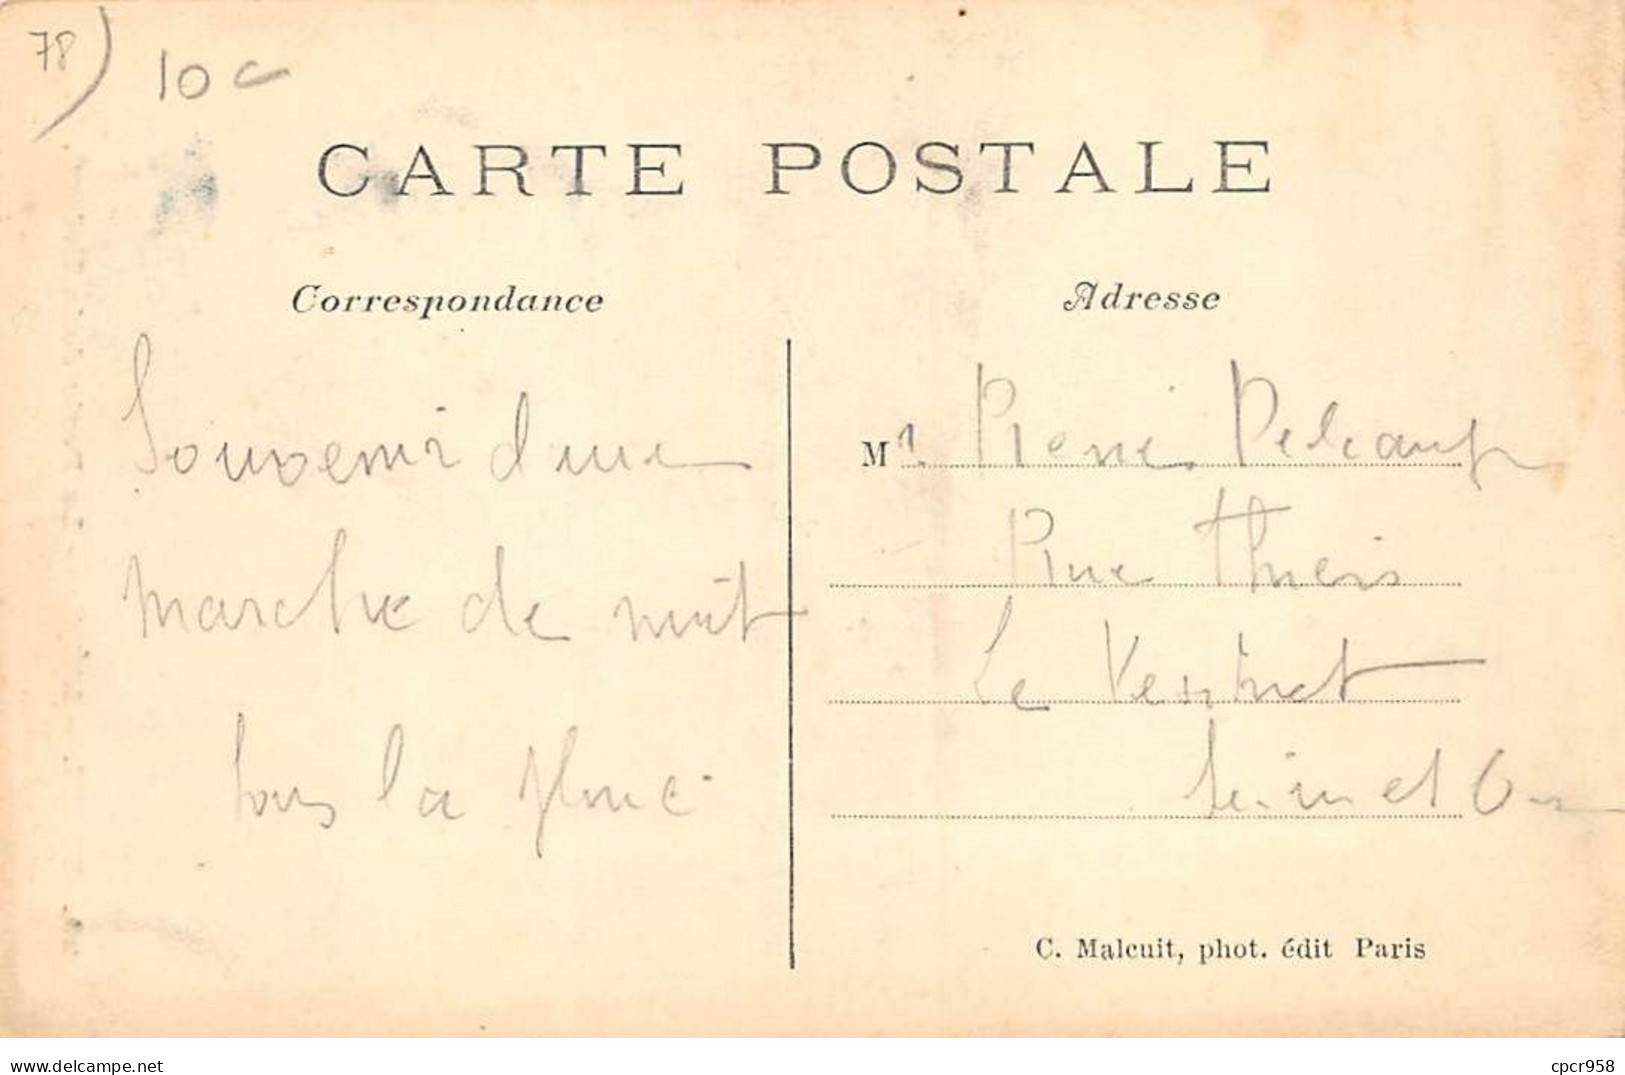 78) 10 c
CARTE POSTALE
Correspondance
Adresse
Souvenir d'une
marche de nuit
sous la pluie
Mr. René
Rue Thiers
Le Vesinet
Seine et Oise
C. Malcuit, phot. édit Paris
www.delcampe.net
cpcr958